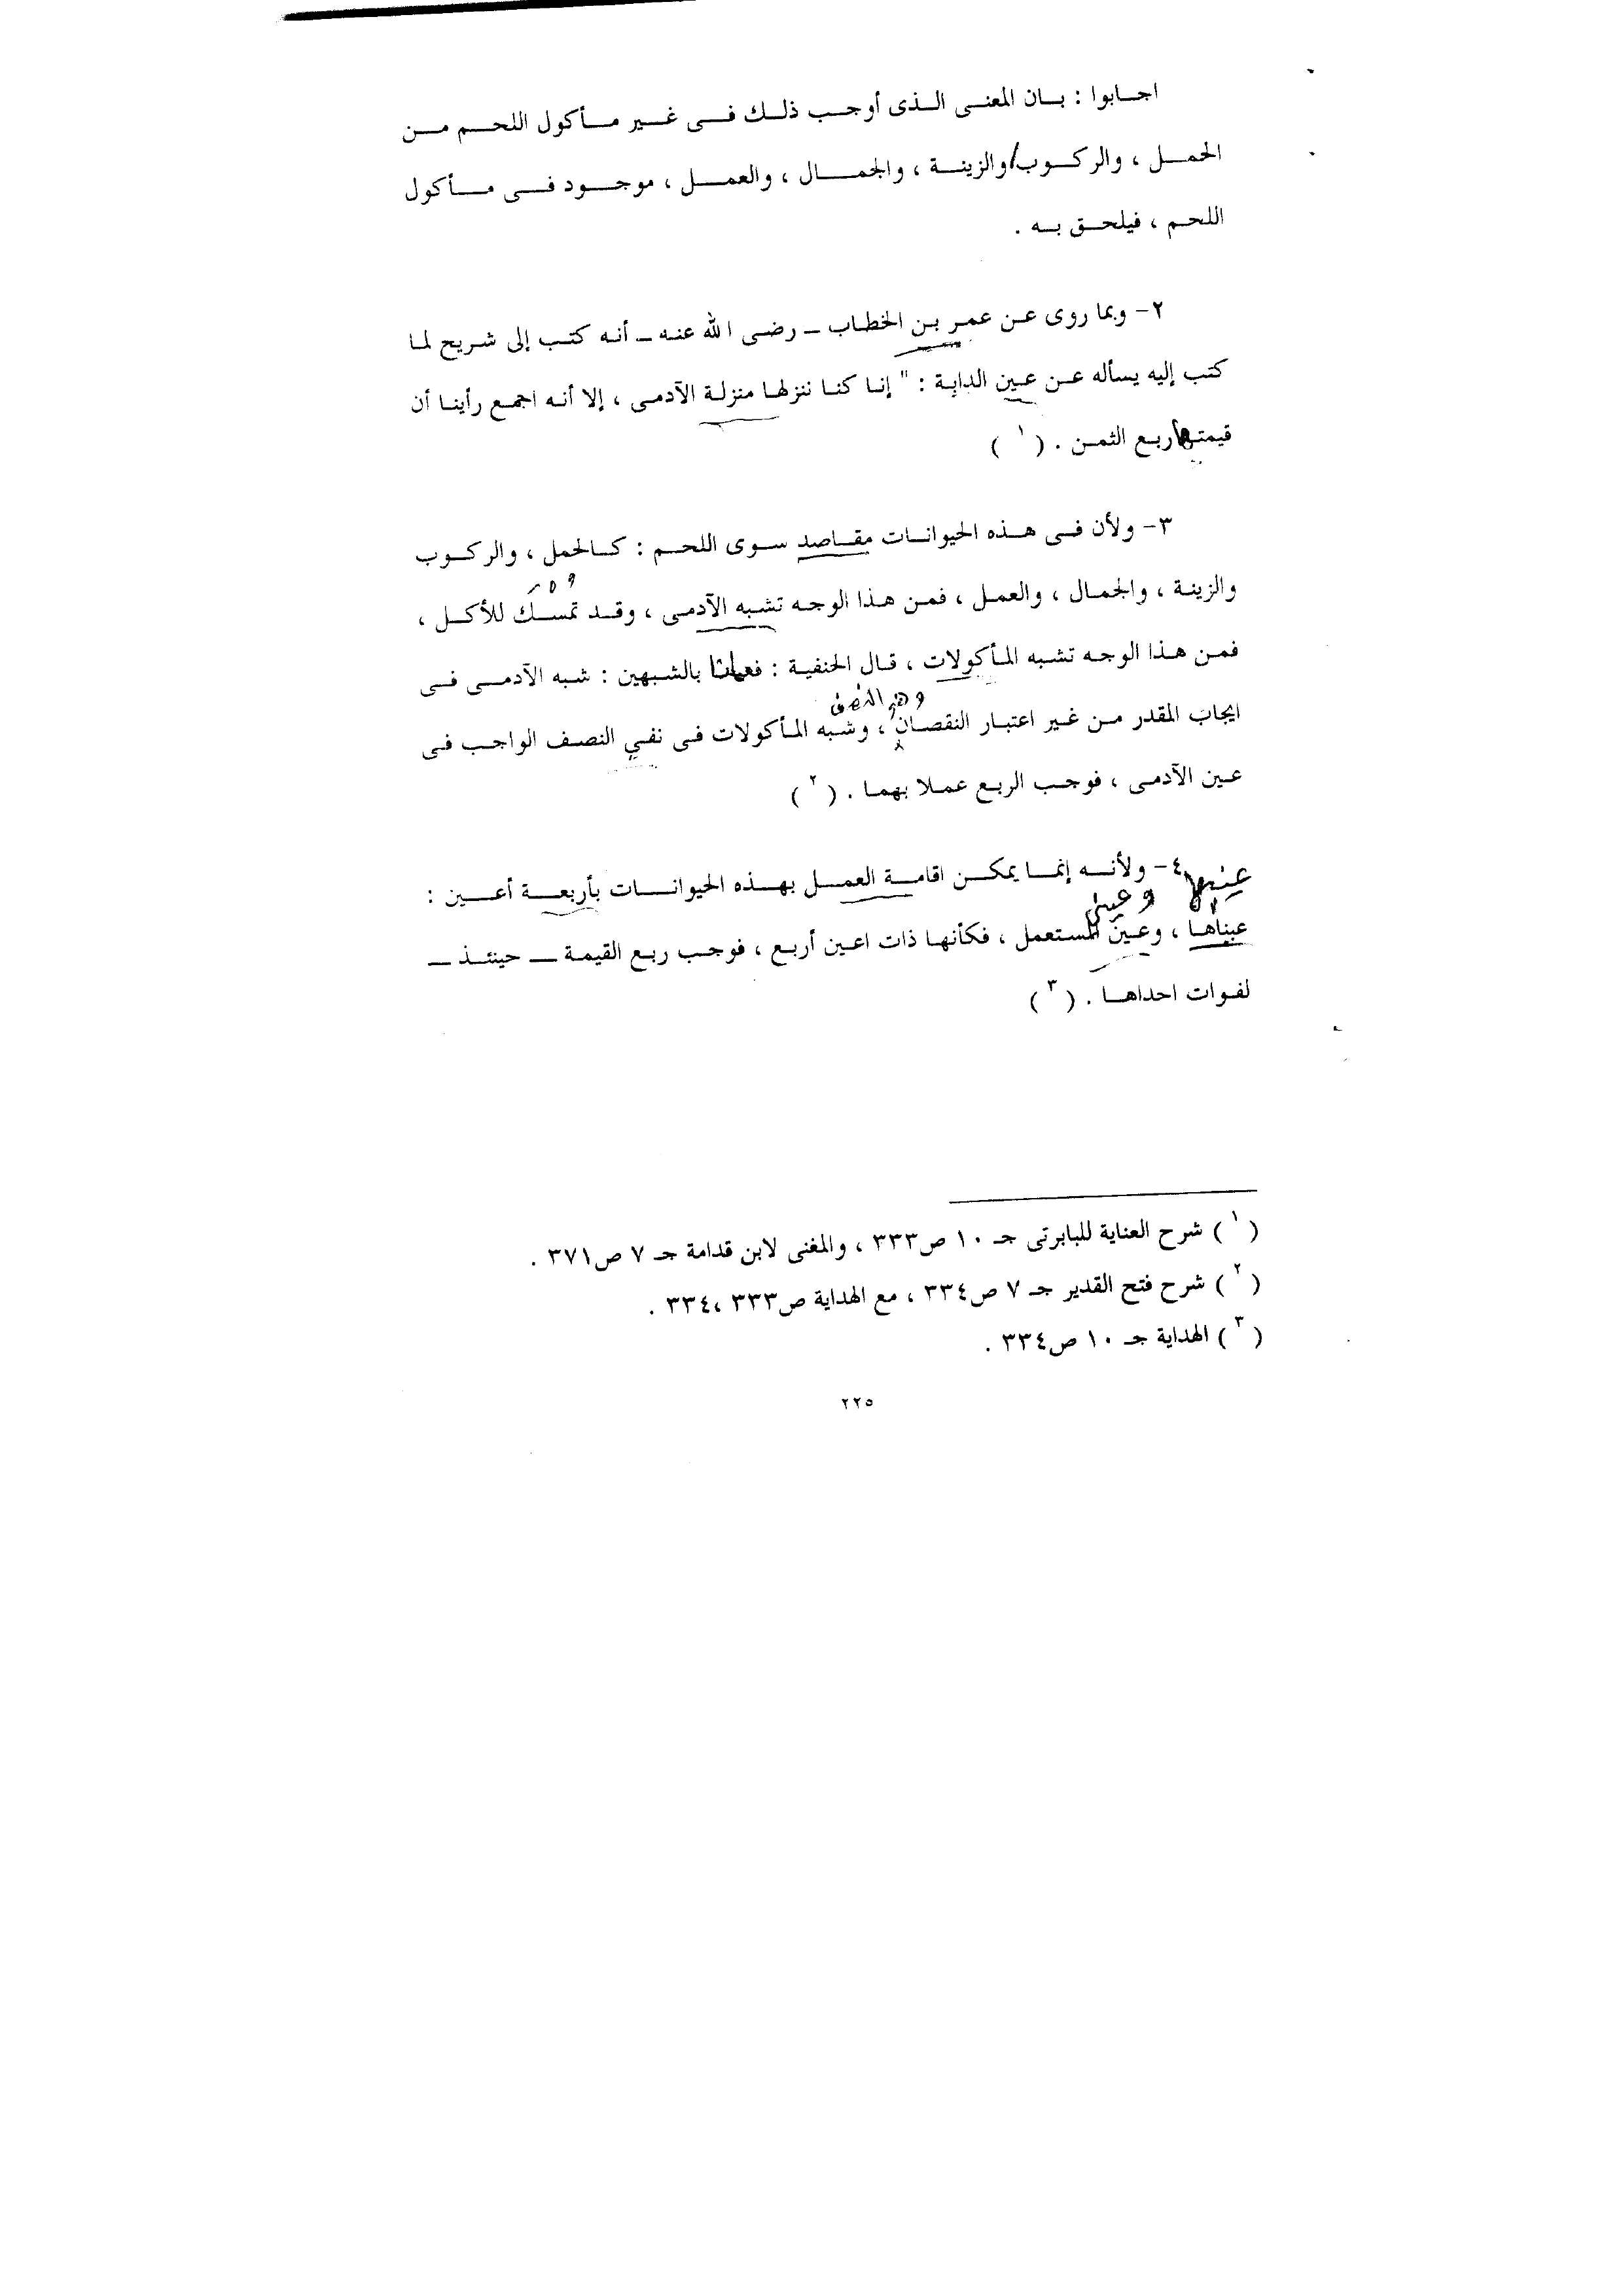 اجابوا : بان المعنى الذى أوجب ذلك فى غير مأكول اللحم من
الحمل ، والركوب/والزينة ، والجمال ، والعمل ، موجود فى مأكول
اللحم ، فيلحق به .
٢- وبما روى عن عمر بن الخطاب – رضى الله عنه – أنه كتب إلى شريح لما
كتب إليه يسأله عن عين الدابة : " إنا كنا ننزلها منزلة الآدمى ، إلا أنه اجمع رأينا أن
قيمتها ربع الثمن . ( ١ )
٣- ولأن فى هذه الحيوانات مقاصد سوى اللحم : كالحمل ، والركوب
والزينة ، والجمال ، والعمل ، فمن هذا الوجه تشبه الآدمى ، وقد تمسك للأكل ،
فمن هذا الوجه تشبه المأكولات ، قال الحنفية : فعملنا بالشبهين : شبه الآدمى فى
وهو النصف
ايجاب المقدر من غير اعتبار النقصان ، وشبه المأكولات فى نفي النصف الواجب فى
عين الآدمى ، فوجب الربع عملا بهما . ( ٢ )
٤- ولأنه إنما يمكن اقامة العمل بهذه الحيوانات بأربعة أعين :
عيناها ، وعين المستعمل ، فكأنها ذات اعين أربع ، فوجب ربع القيمة – حينئذ –
لفوات احداها . ( ٣ )
( ١ ) شرح العناية للبابرتى جـ ١٠ ص٣٣٣ ، والمغنى لابن قدامة جـ ٧ ص٣٧١ .
( ٢ ) شرح فتح القدير جـ ٧ ص٣٣٤ ، مع الهداية ص٣٣٣ ،٣٣٤ .
( ٣ ) الهداية جـ ١٠ ص٣٣٤ .
٢٢٥